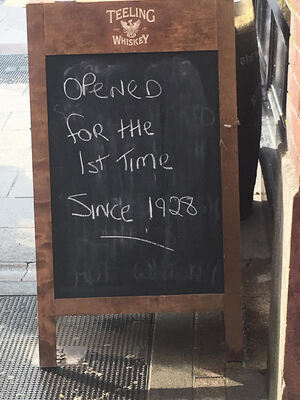 TEELING
WHISKEY
OPENED
FOR THE
1ST TIME
SINCE 1928